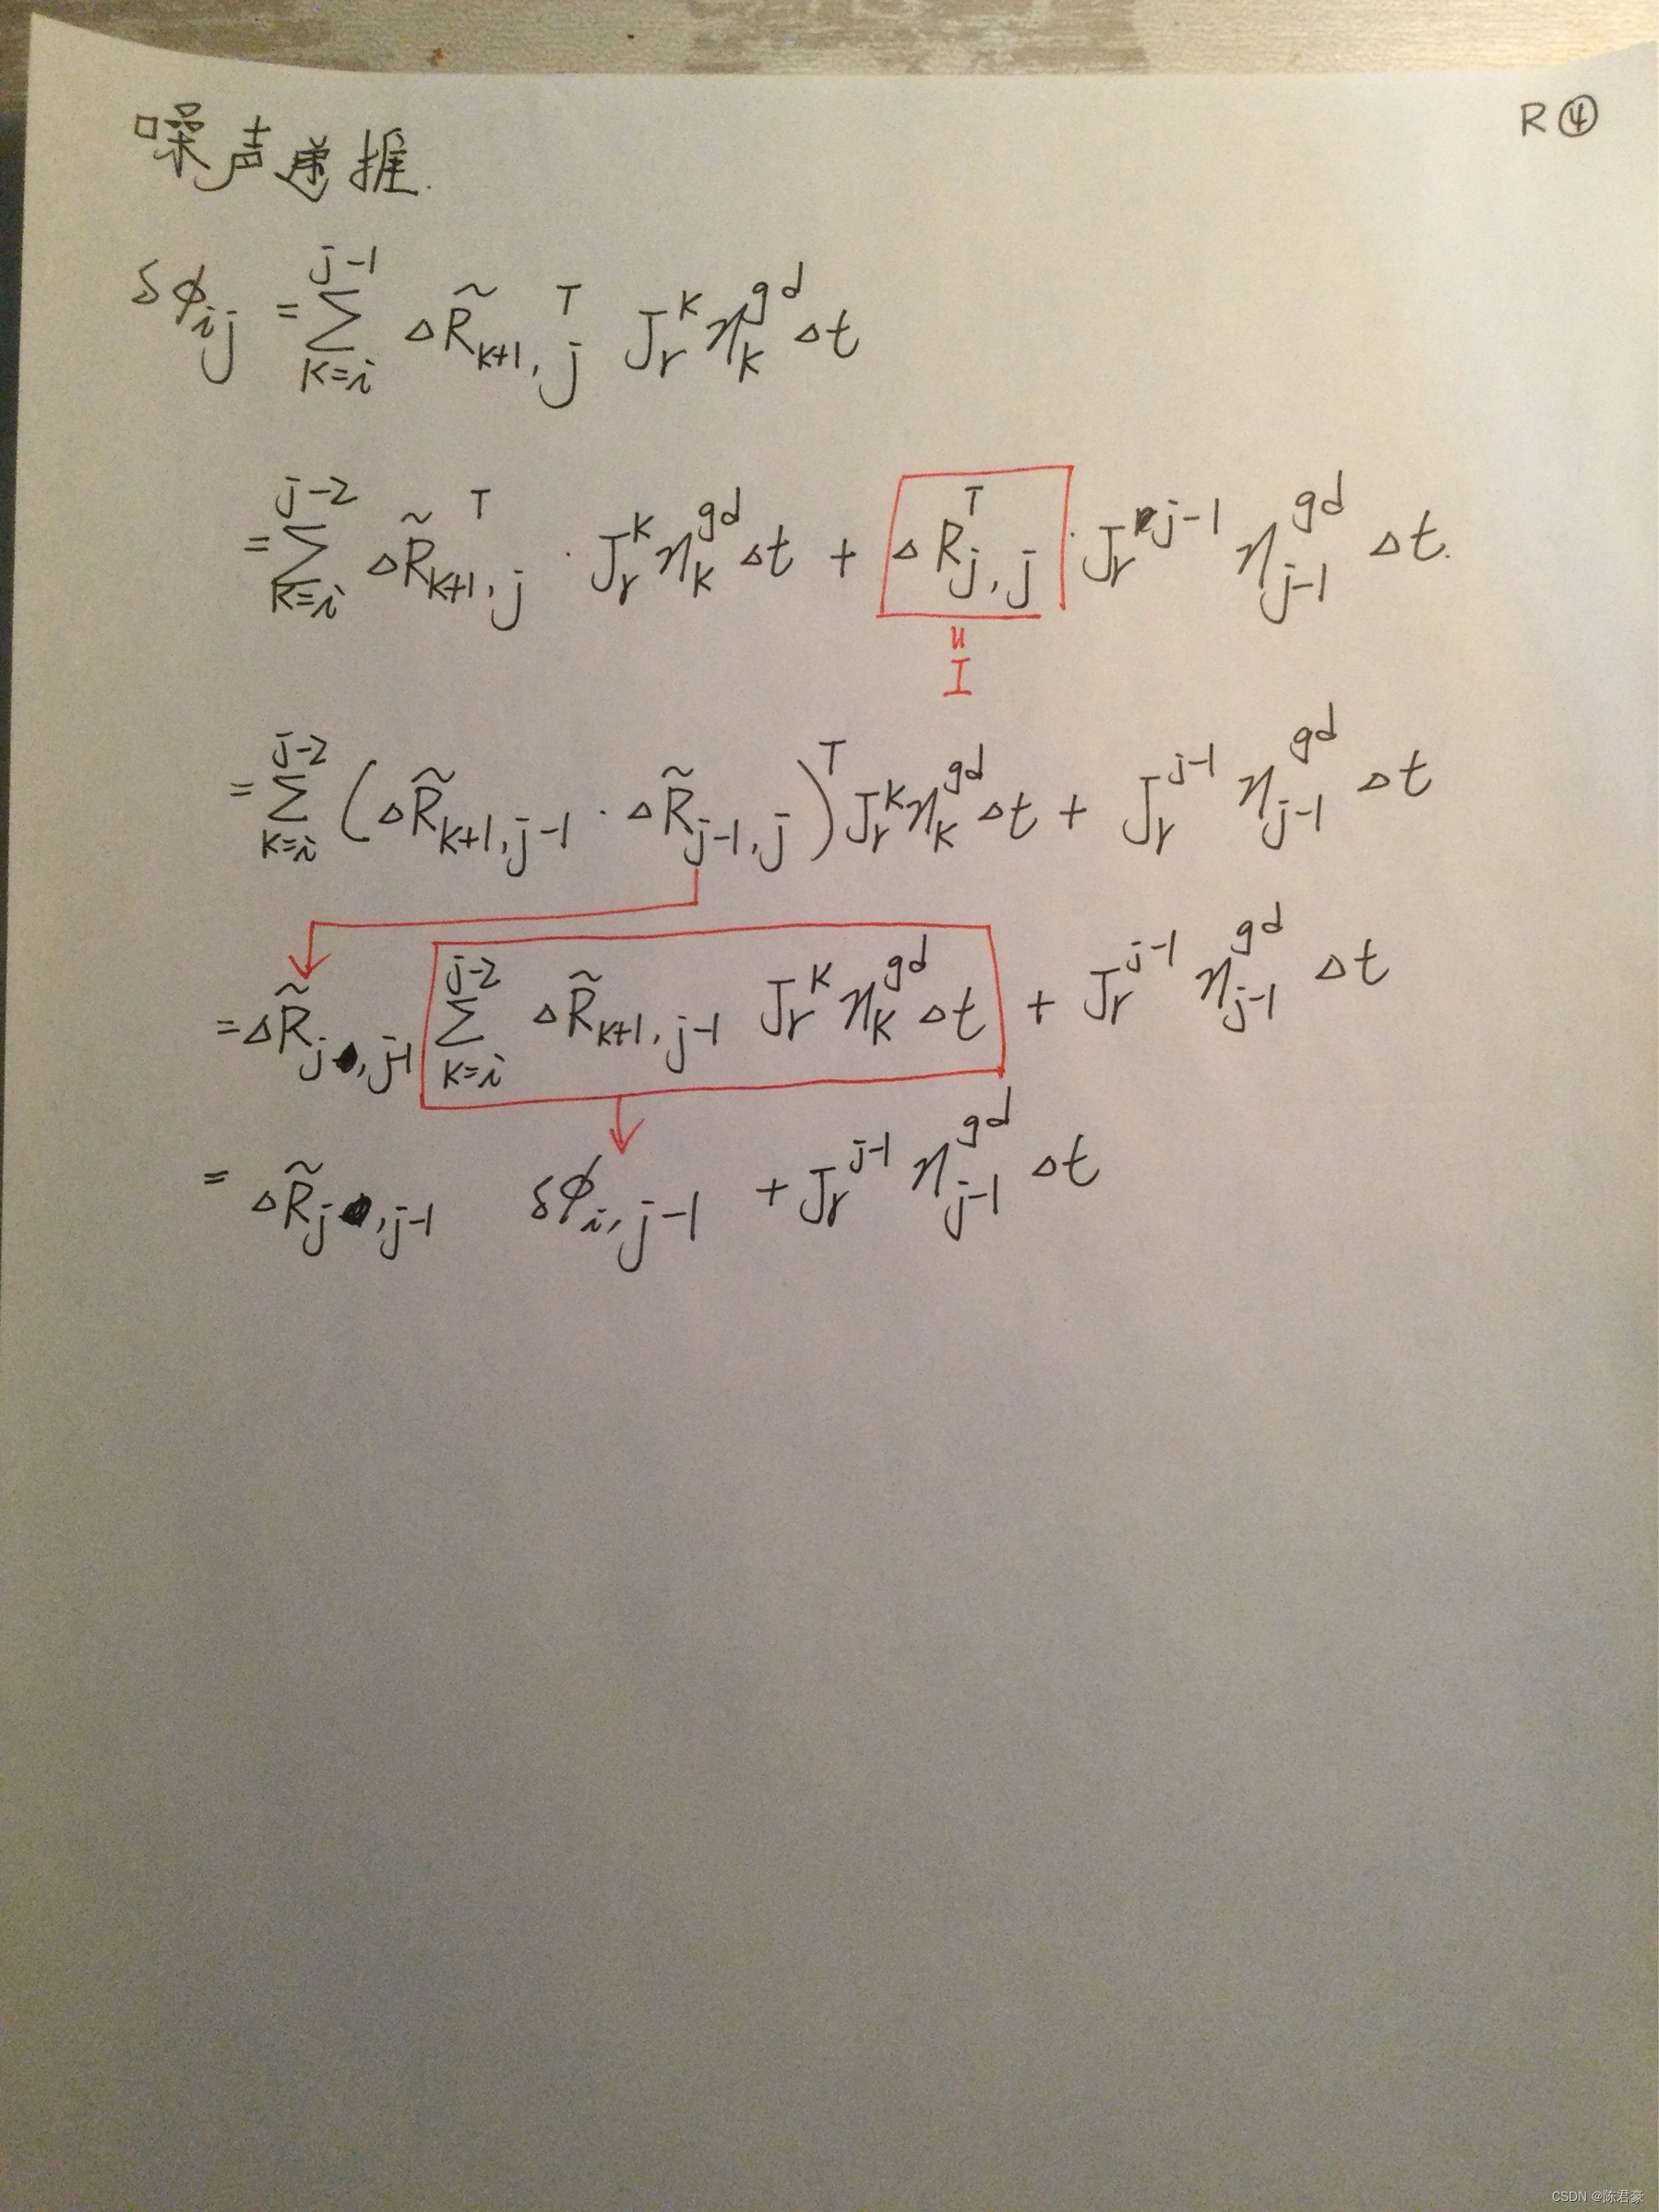 R④
噪声递推.
δϕ_{ij} = \sum_{k=i}^{j-1} Δ\tilde{R}_{k+1,j}^T J_r^k η_k^{gd} Δt
= \sum_{k=i}^{j-2} Δ\tilde{R}_{k+1,j}^T · J_r^k η_k^{gd} Δt + ΔR_{j,j}^T · J_r^{j-1} η_{j-1}^{gd} Δt.
=
I
= \sum_{k=i}^{j-2} (Δ\tilde{R}_{k+1,j-1} · Δ\tilde{R}_{j-1,j})^T J_r^k η_k^{gd} Δt + J_r^{j-1} η_{j-1}^{gd} Δt
= Δ\tilde{R}_{j,j-1} \sum_{k=i}^{j-2} Δ\tilde{R}_{k+1,j-1} J_r^k η_k^{gd} Δt + J_r^{j-1} η_{j-1}^{gd} Δt
= Δ\tilde{R}_{j,j-1} δϕ_{i,j-1} + J_r^{j-1} η_{j-1}^{gd} Δt
CSDN @陈君豪